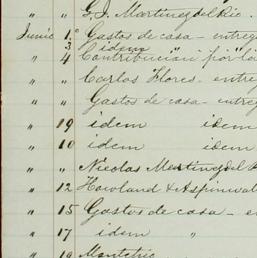 " " G. J. Martinez del Rio.
Junio 1º Gastos de casa - entreg
" 3 idem "
" 4 Contribucion por lo
" " Carlos Flores - entre
" " Gastos de casa - entreg
" 19 idem idem
" 10 idem idem
" " Nicolas Martinez del R
" 12 Howland & Aspinwal
" 15 Gastos de casa - e
" 17 idem "
" 19